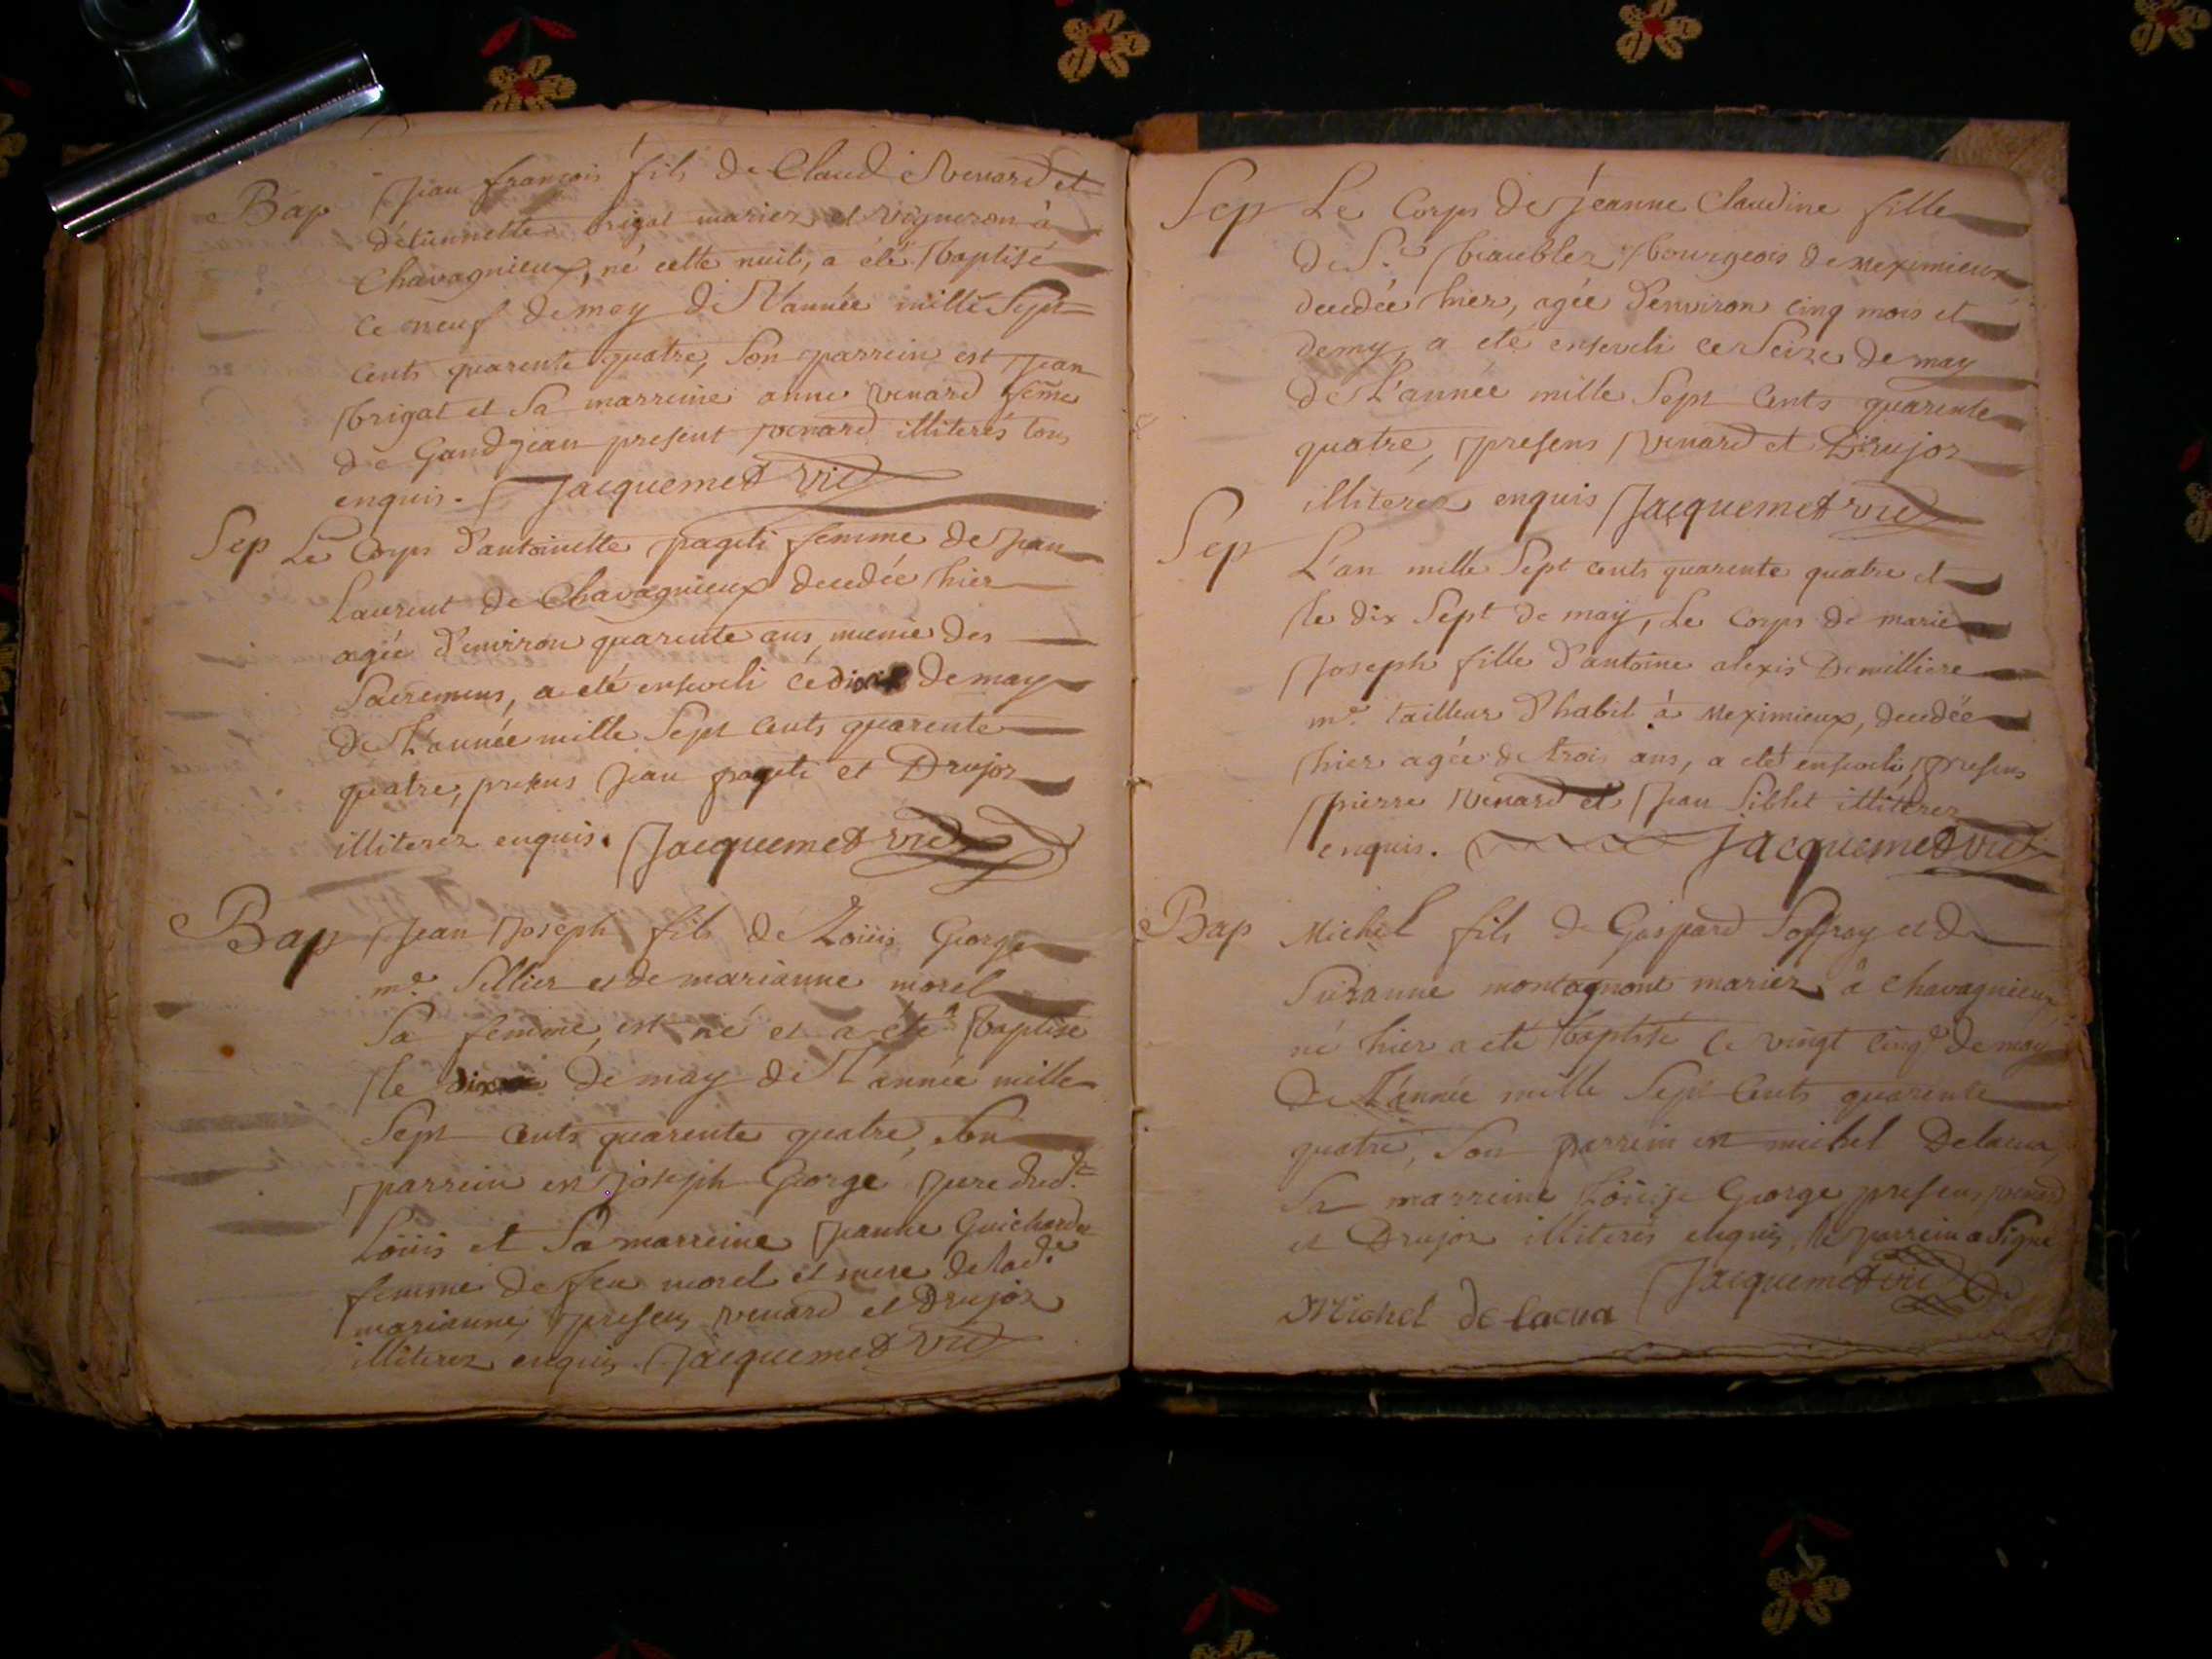 Bap Jean françois fils de Claud Venard et
d'étiennette brigat mariez et vigneron à
Chavagnieux, né cette nuit, a été baptisé
ce neuf de may de L'année mille Sept
cents quarente quatre, Son parrein est Jean
brigat et Sa marreine anne venard feme
de Gandjean present venard illiterés tous
enquis. Jacquemet vic
Sep Le Corps d'antoinette pageti femme de Jean
Laurent de Chavagnieux decedée hier
agée d'environ quarente ans, munie des
Sacremens, a eté enseveli ce dix de may
de L'année mille Sept cents quarente
quatre, presens Jean pageti et Drujoz
illiterez enquis. Jacquemet vic
Bap Jean Joseph fils de Loüis George
me. Sellier et de marianne morel
Sa femme, est né et a eté baptisé
le dix de may de L'année mille
Sept cents quarente quatre, Son
parrein est joseph George pere dud.t
Loüis et Sa marreine Jeanne Guichard
femme de feu morel et mere de lad.e
marianne, presens venard et Drujoz
illiterez enquis. Jacquemet vic
Sep Le Corps de Jeanne Claudine fille
de S.r beaublez bourgeois de meximieux
decedée hier, agée d'environ cinq mois et
demy, a eté enseveli ce Seize de may
de L'année mille Sept Cents quarente
quatre, presens venard et Drujoz
illiterez enquis Jacquemet vic
Sep L'an mille Sept cents quarente quatre et
le dix Sept de may, Le Corps de marie
Joseph fille d'antoine alexis Demilliere
me. tailleur d'habit à meximieux, decedée
hier agée de trois ans, a eté enseveli, presens
pierre venard et Jean Siblet illiterez
enquis. Jacquemet vic
Bap Michel fils de Gaspard Soffray et de
Suzanne montagnont mariez à Chavagnieux
né hier a eté baptisé ce vingt cinq de may
De L'année mille Sept Cents quarente
quatre, Son parrein est michel Delacua,
Sa marreine Loüise George presens venard
et Drujoz illiterés enquis, le parrein a Signé
Michel de lacua Jacquemet vic